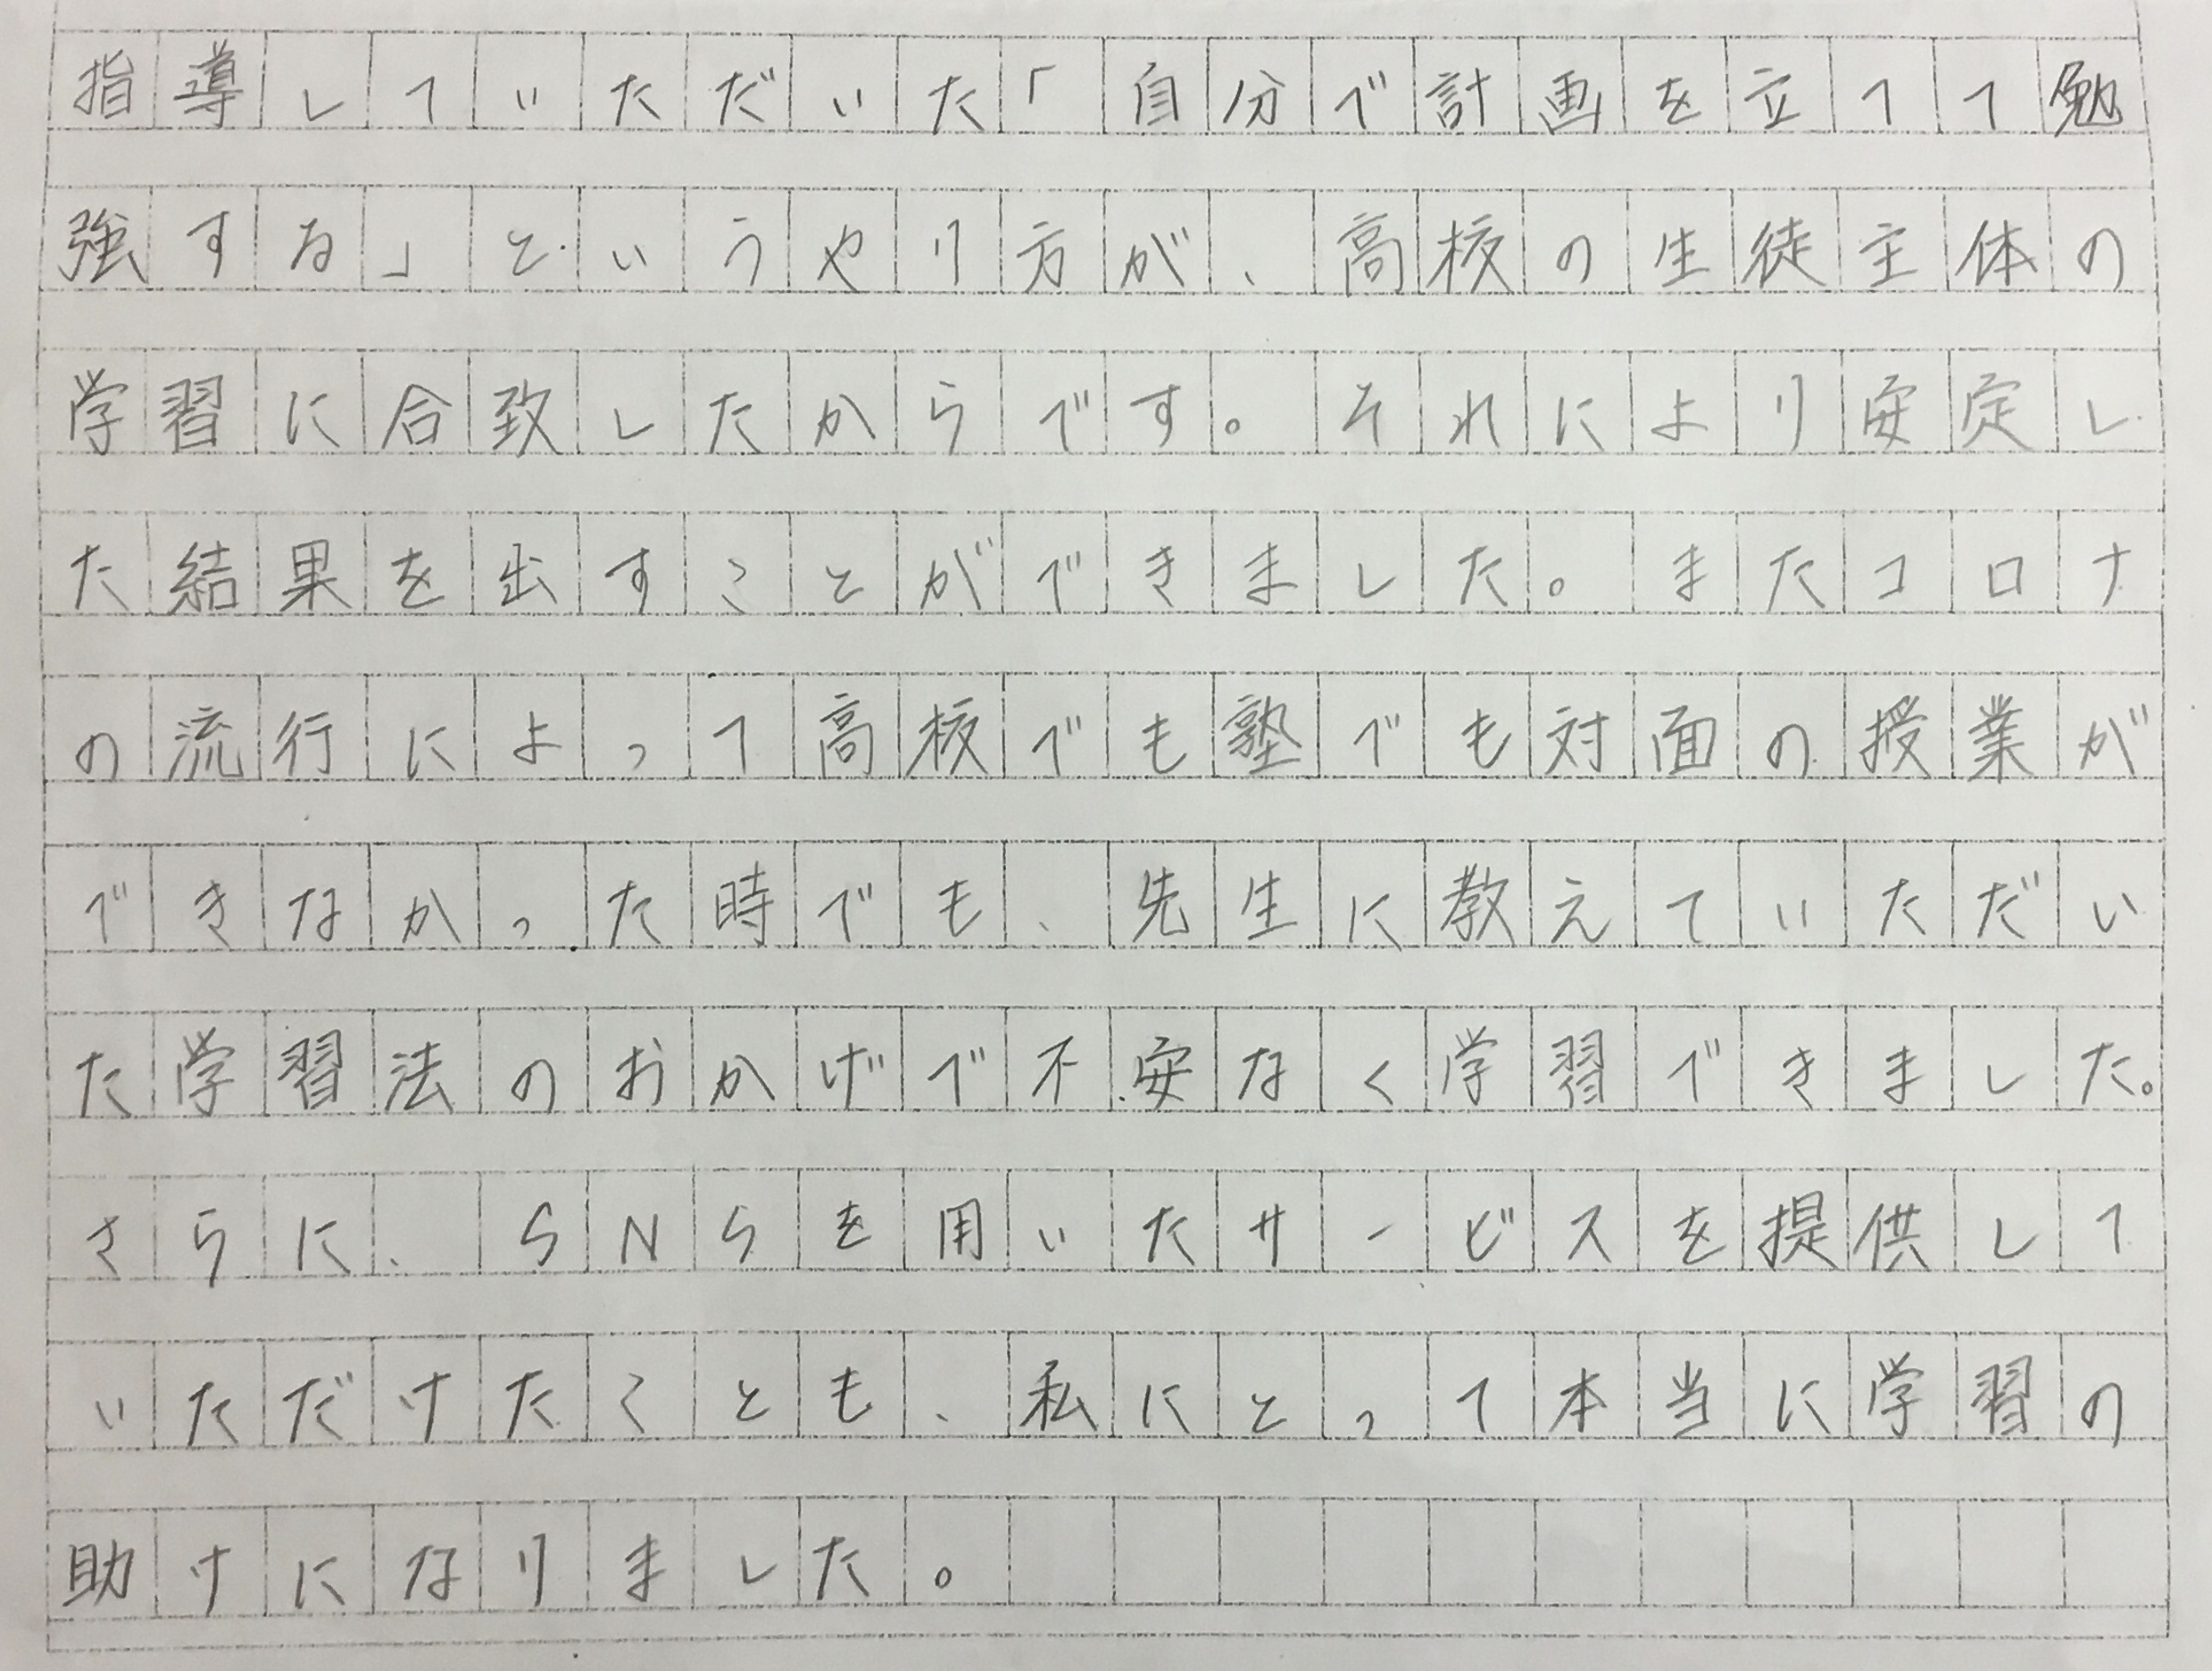 指導していただいた「自分で計画を立てて勉
強する」というやり方が、高校の生徒主体の
学習に合致したからです。それにより安定し
た結果を出すことができました。またコロナ
の流行によって高校でも塾でも対面の授業が
できなかった時でも、先生に教えていただい
た学習法のおかげで不安なく学習できました。
さらに、SNSを用いたサービスを提供して
いただけたことも、私にとって本当に学習の
助けになりました。